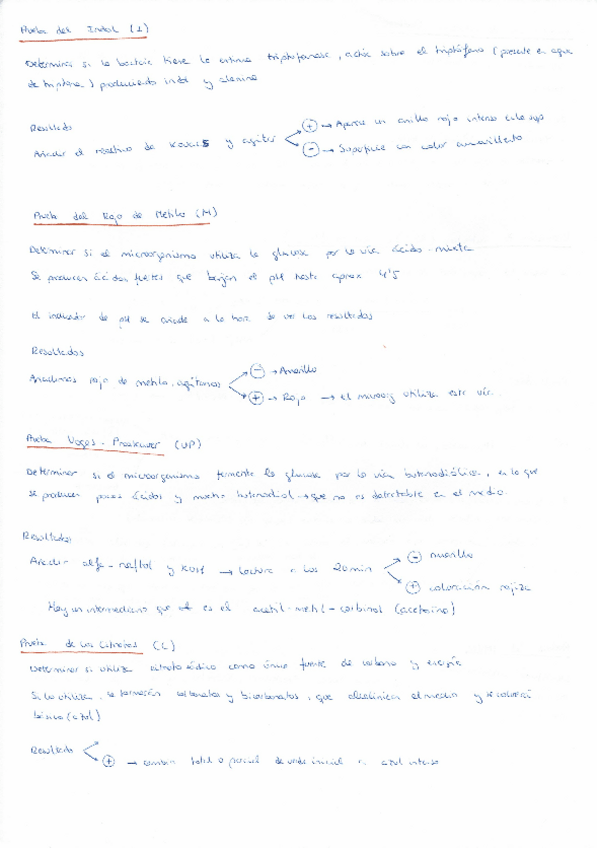 Prueba del Indol (I)
Determinar si la bacteria tiene la enzima triptofanasa, actúa sobre el triptófano (presente en agua
de triptona) produciendo indol y alanina
Resultado
Añadir el reactivo de Kovacs y agitar
+ → Aparece un anillo rojo intenso en la sup
- → Superficie un color amarillento
Prueba del Rojo de Metilo (M)
Determinar si el microorganismo utiliza la glucosa por la vía ácido-mixta
Se producen ácidos fuertes que bajan el pH hasta aprox 4'5
El indicador de pH se añade a la hora de ver los resultados
Resultados
Añadimos rojo de metilo, agitamos
- → Amarillo
+ → Rojo → el microorg utiliza esta vía
Prueba Voges-Proskauer (VP)
Determinar si el microorganismo fermenta la glucosa por la vía butanodiólica, en la que
se producen pocos ácidos y mucho butanodiol → que no es detectable en el medio.
Resultados
Añadir alfa-naftol y KOH → lectura a los 20 min
- amarillo
+ coloración rojiza
Hay un intermediario que es el acetil-metil-carbinol (acetoína)
Prueba de los Citratos (C)
Determinar si utiliza citrato sódico como única fuente de carbono y energía
Si lo utiliza, la formación carbonatos y bicarbonatos, que alcalinizan el medio y
básico (azul)
Resultado
+ → cambio total o parcial de verde inicial a azul intenso